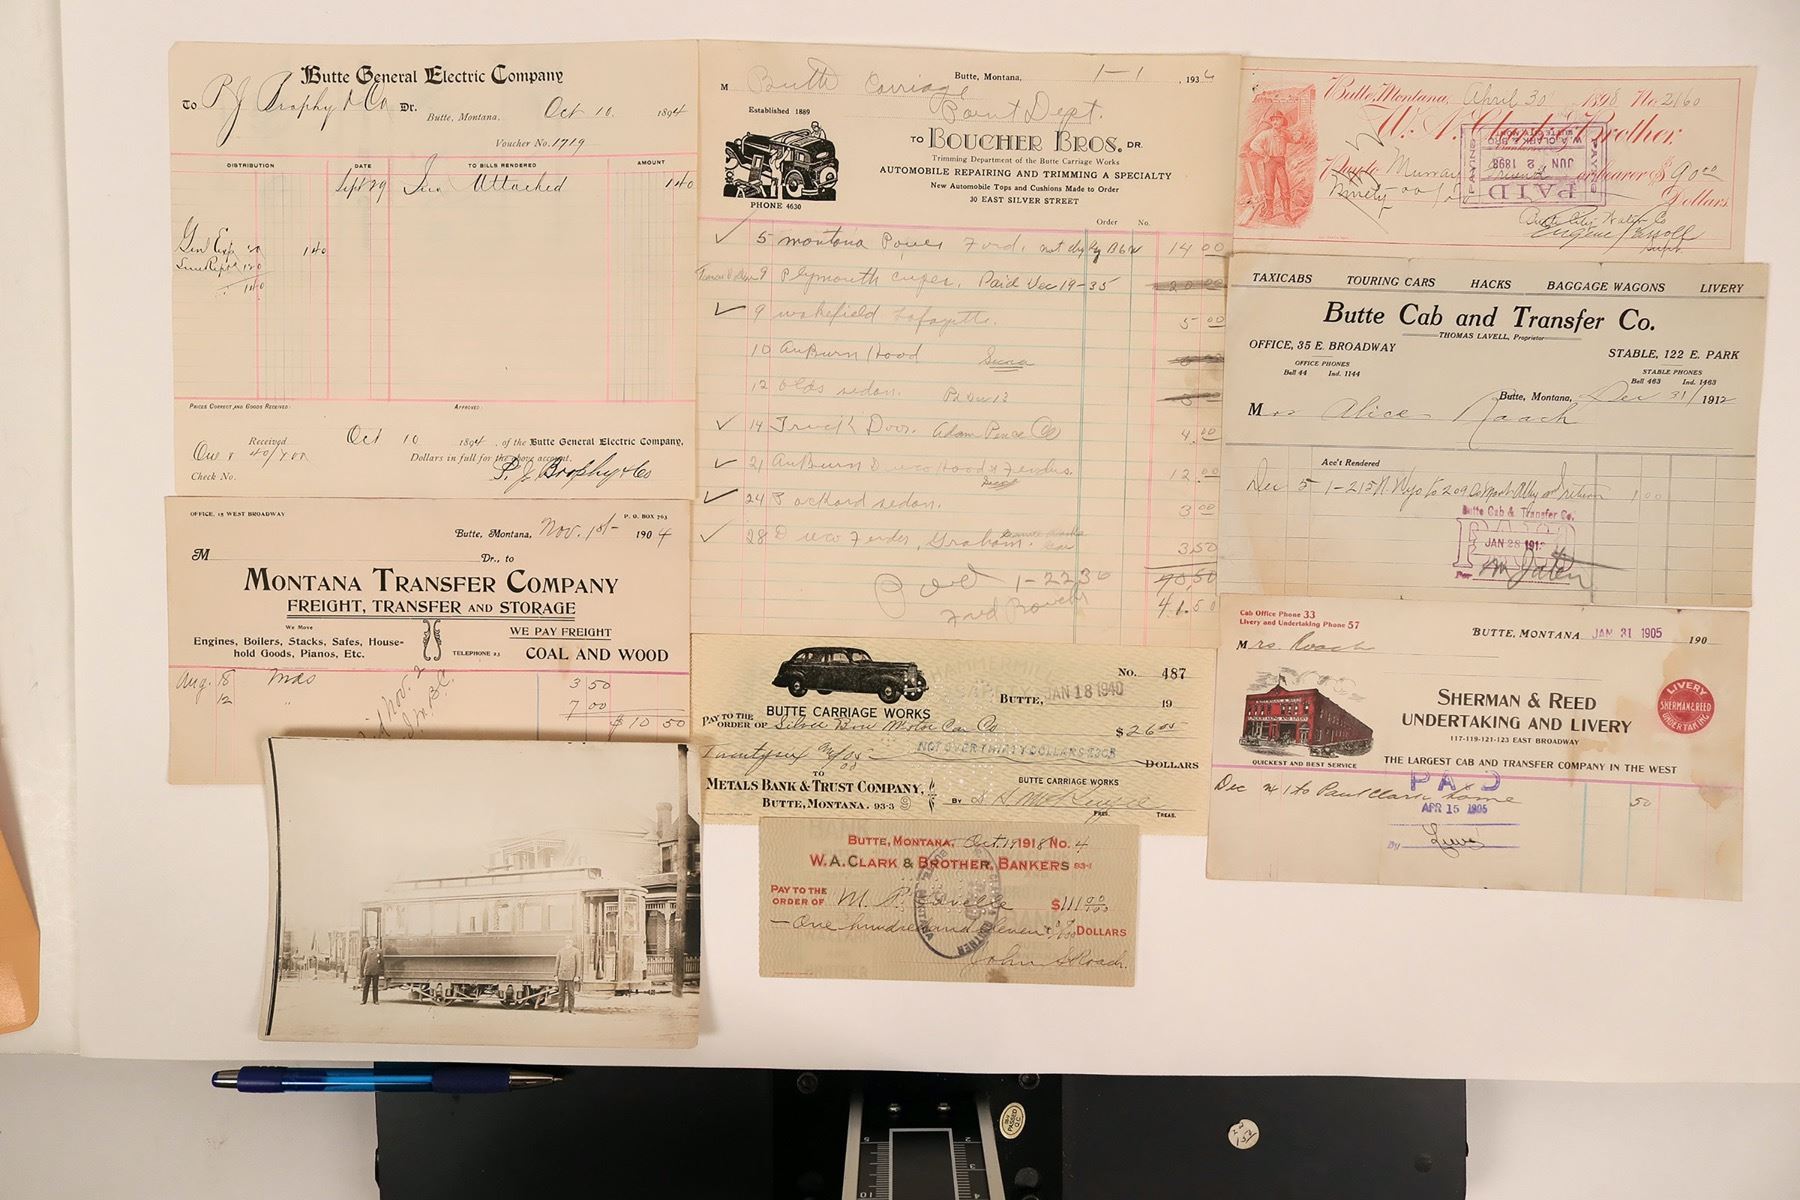 Butte General Electric Company
To P J Brophy & Co Dr.
Butte, Montana, Oct 10 1894
Voucher No. 1719
DISTRIBUTION DATE TO BILLS RENDERED AMOUNT
Sept 29 Attached 1 40
Genl Exp 1 40
PRICES CORRECT AND GOODS RECEIVED: APPROVED:
Received Oct 10 1894, of the Butte General Electric Company,
One & 40/100 Dollars in full for the above account.
Check No. P. J. Brophy & Co
OFFICE, 15 WEST BROADWAY P. O. BOX 763
Butte, Montana, Nov. 1st 1904
M Dr., to
MONTANA TRANSFER COMPANY
FREIGHT, TRANSFER AND STORAGE
We Move
Engines, Boilers, Stacks, Safes, House-
hold Goods, Pianos, Etc.
TELEPHONE 23
WE PAY FREIGHT
COAL AND WOOD
Aug. 8 Mds 3 50
12 " 7 00
$10 50
Butte, Montana, 1-1, 1936
M Butte Carriage
Paint Dept.
Established 1889
TO BOUCHER BROS. DR.
Trimming Department of the Butte Carriage Works
AUTOMOBILE REPAIRING AND TRIMMING A SPECIALTY
New Automobile Tops and Cushions Made to Order
30 EAST SILVER STREET
PHONE 4630
Order No.
5 Montana Power Ford. 14 00
9 Plymouth Paid Dec 19-35 20 00
9 Wakefield Lafayette. 5 00
10 AuBurn Hood
12 Olds sedan.
14 Truck Door. Adam Pence Co 4.00
21 AuBurn Duco Hood & Fenders. 12 00
24 Packard sedan. 3 00
28 Duco Fender, Graham. 3.50
Paid 1-22 36
41.50
No. 487
BUTTE, JAN 18 1940 19
BUTTE CARRIAGE WORKS
PAY TO THE
ORDER OF Silver Bow Motor Car Co $26.05
NOT OVER THIRTY DOLLARS $30$
Twenty six DOLLARS
TO
METALS BANK & TRUST COMPANY,
BUTTE, MONTANA. 93-3 9
BUTTE CARRIAGE WORKS
BY
PRES. TREAS.
BUTTE, MONTANA, Oct 19 1918 No. 4
W. A. CLARK & BROTHER, BANKERS 93-1
PAY TO THE
ORDER OF M. P. $111 00/100
One hundred and eleven DOLLARS
John S Roach.
Butte, Montana, April 30 1898 No 2160
W. A. Clark & Brother,
Pay to Murray or bearer $90.00
Ninety 00/100 Dollars
PAID
JUN 2 1898
W. A. CLARK & BRO
Butte City Water Co
Eugene Carroll
Supt.
TAXICABS TOURING CARS HACKS BAGGAGE WAGONS LIVERY
Butte Cab and Transfer Co.
THOMAS LAVELL, Proprietor
OFFICE, 35 E. BROADWAY STABLE, 122 E. PARK
OFFICE PHONES STABLE PHONES
Bell 44 Ind. 1144 Bell 463 Ind. 1463
Butte, Montana, Dec 31/1912
Mrs Alice Roach
Acc't Rendered
Dec 5 1-215 N. Wyo to 209 and return 1 00
Butte Cab & Transfer Co.
PAID
JAN 28 1913
Per
Cab Office Phone 33
Livery and Undertaking Phone 57
BUTTE, MONTANA JAN 31 1905 190
Mrs. Roach
SHERMAN & REED
UNDERTAKING AND LIVERY
117-119-121-123 EAST BROADWAY
LIVERY
SHERMAN & REED
UNDERTAKING
QUICKEST AND BEST SERVICE
THE LARGEST CAB AND TRANSFER COMPANY IN THE WEST
Dec 24 1 to Paul Clark Home 50
PAID
APR 15 1905
By
PASSED
Q.C